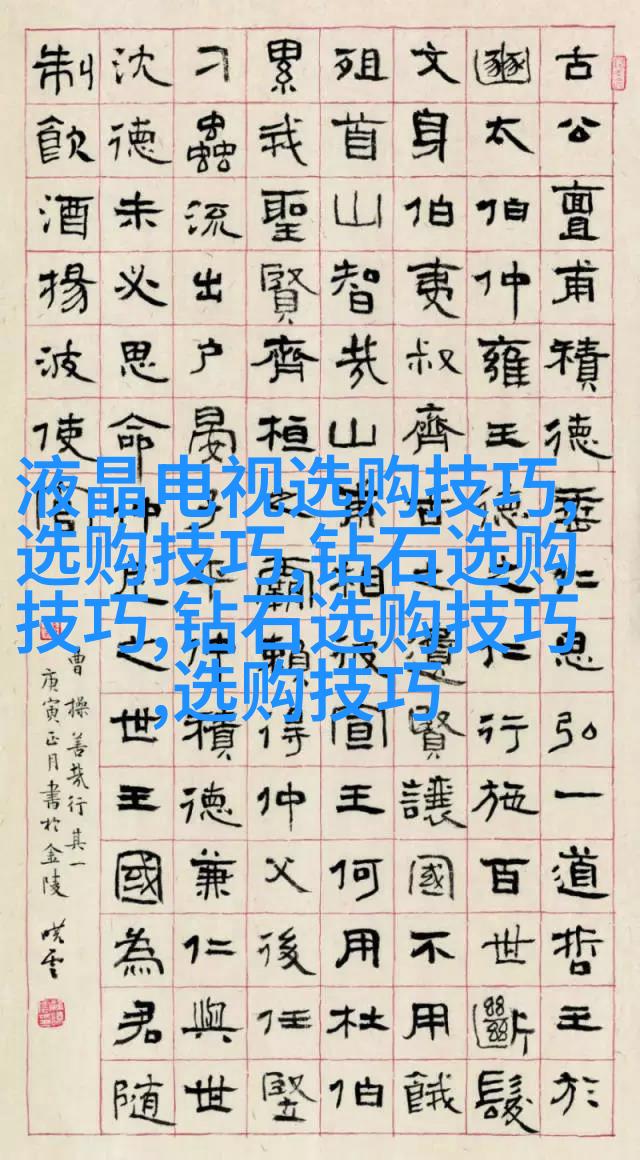 古公亶甫積德垂仁思弘一道哲王於
豳太伯仲雍王德之仁行施百世斷髮
文身伯夷叔齊古之遺賢讓國不用餓
殂首山智哉山東相彼宣王何用杜伯
累我聖賢齊桓之霸賴得仲父後任豎
刁蟲流出户晏子平仲積德兼仁與世
沈德未必思命仲尼之世王國為君隨
制飲酒揚波使官
曹操善哉行其一
庚寅正月書於金陵
液晶电视选购技巧,
选购技巧,钻石选购
技巧,钻石选购技巧
,选购技巧